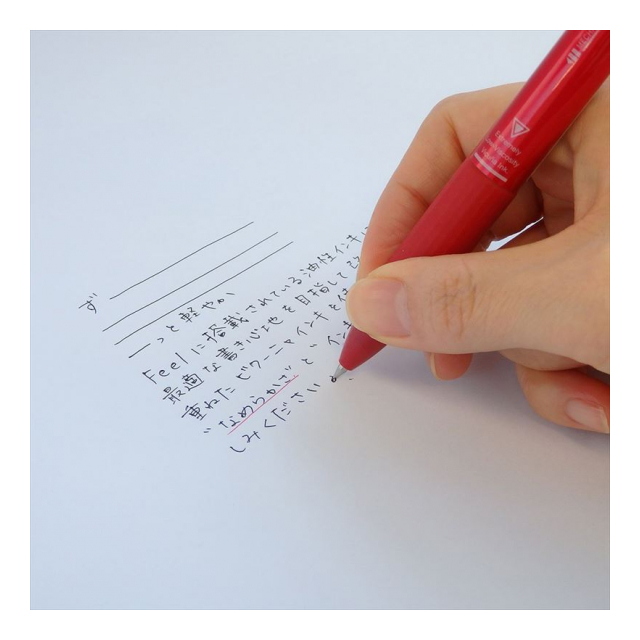 ず
ーっと軽やか
Feelに搭載されている油性インキ
最適な書き心地を目指して
重ねたビクーニャインキ
“なめらかさ”と“インキ
しみください
Extremely
Low Viscosity
Ink.